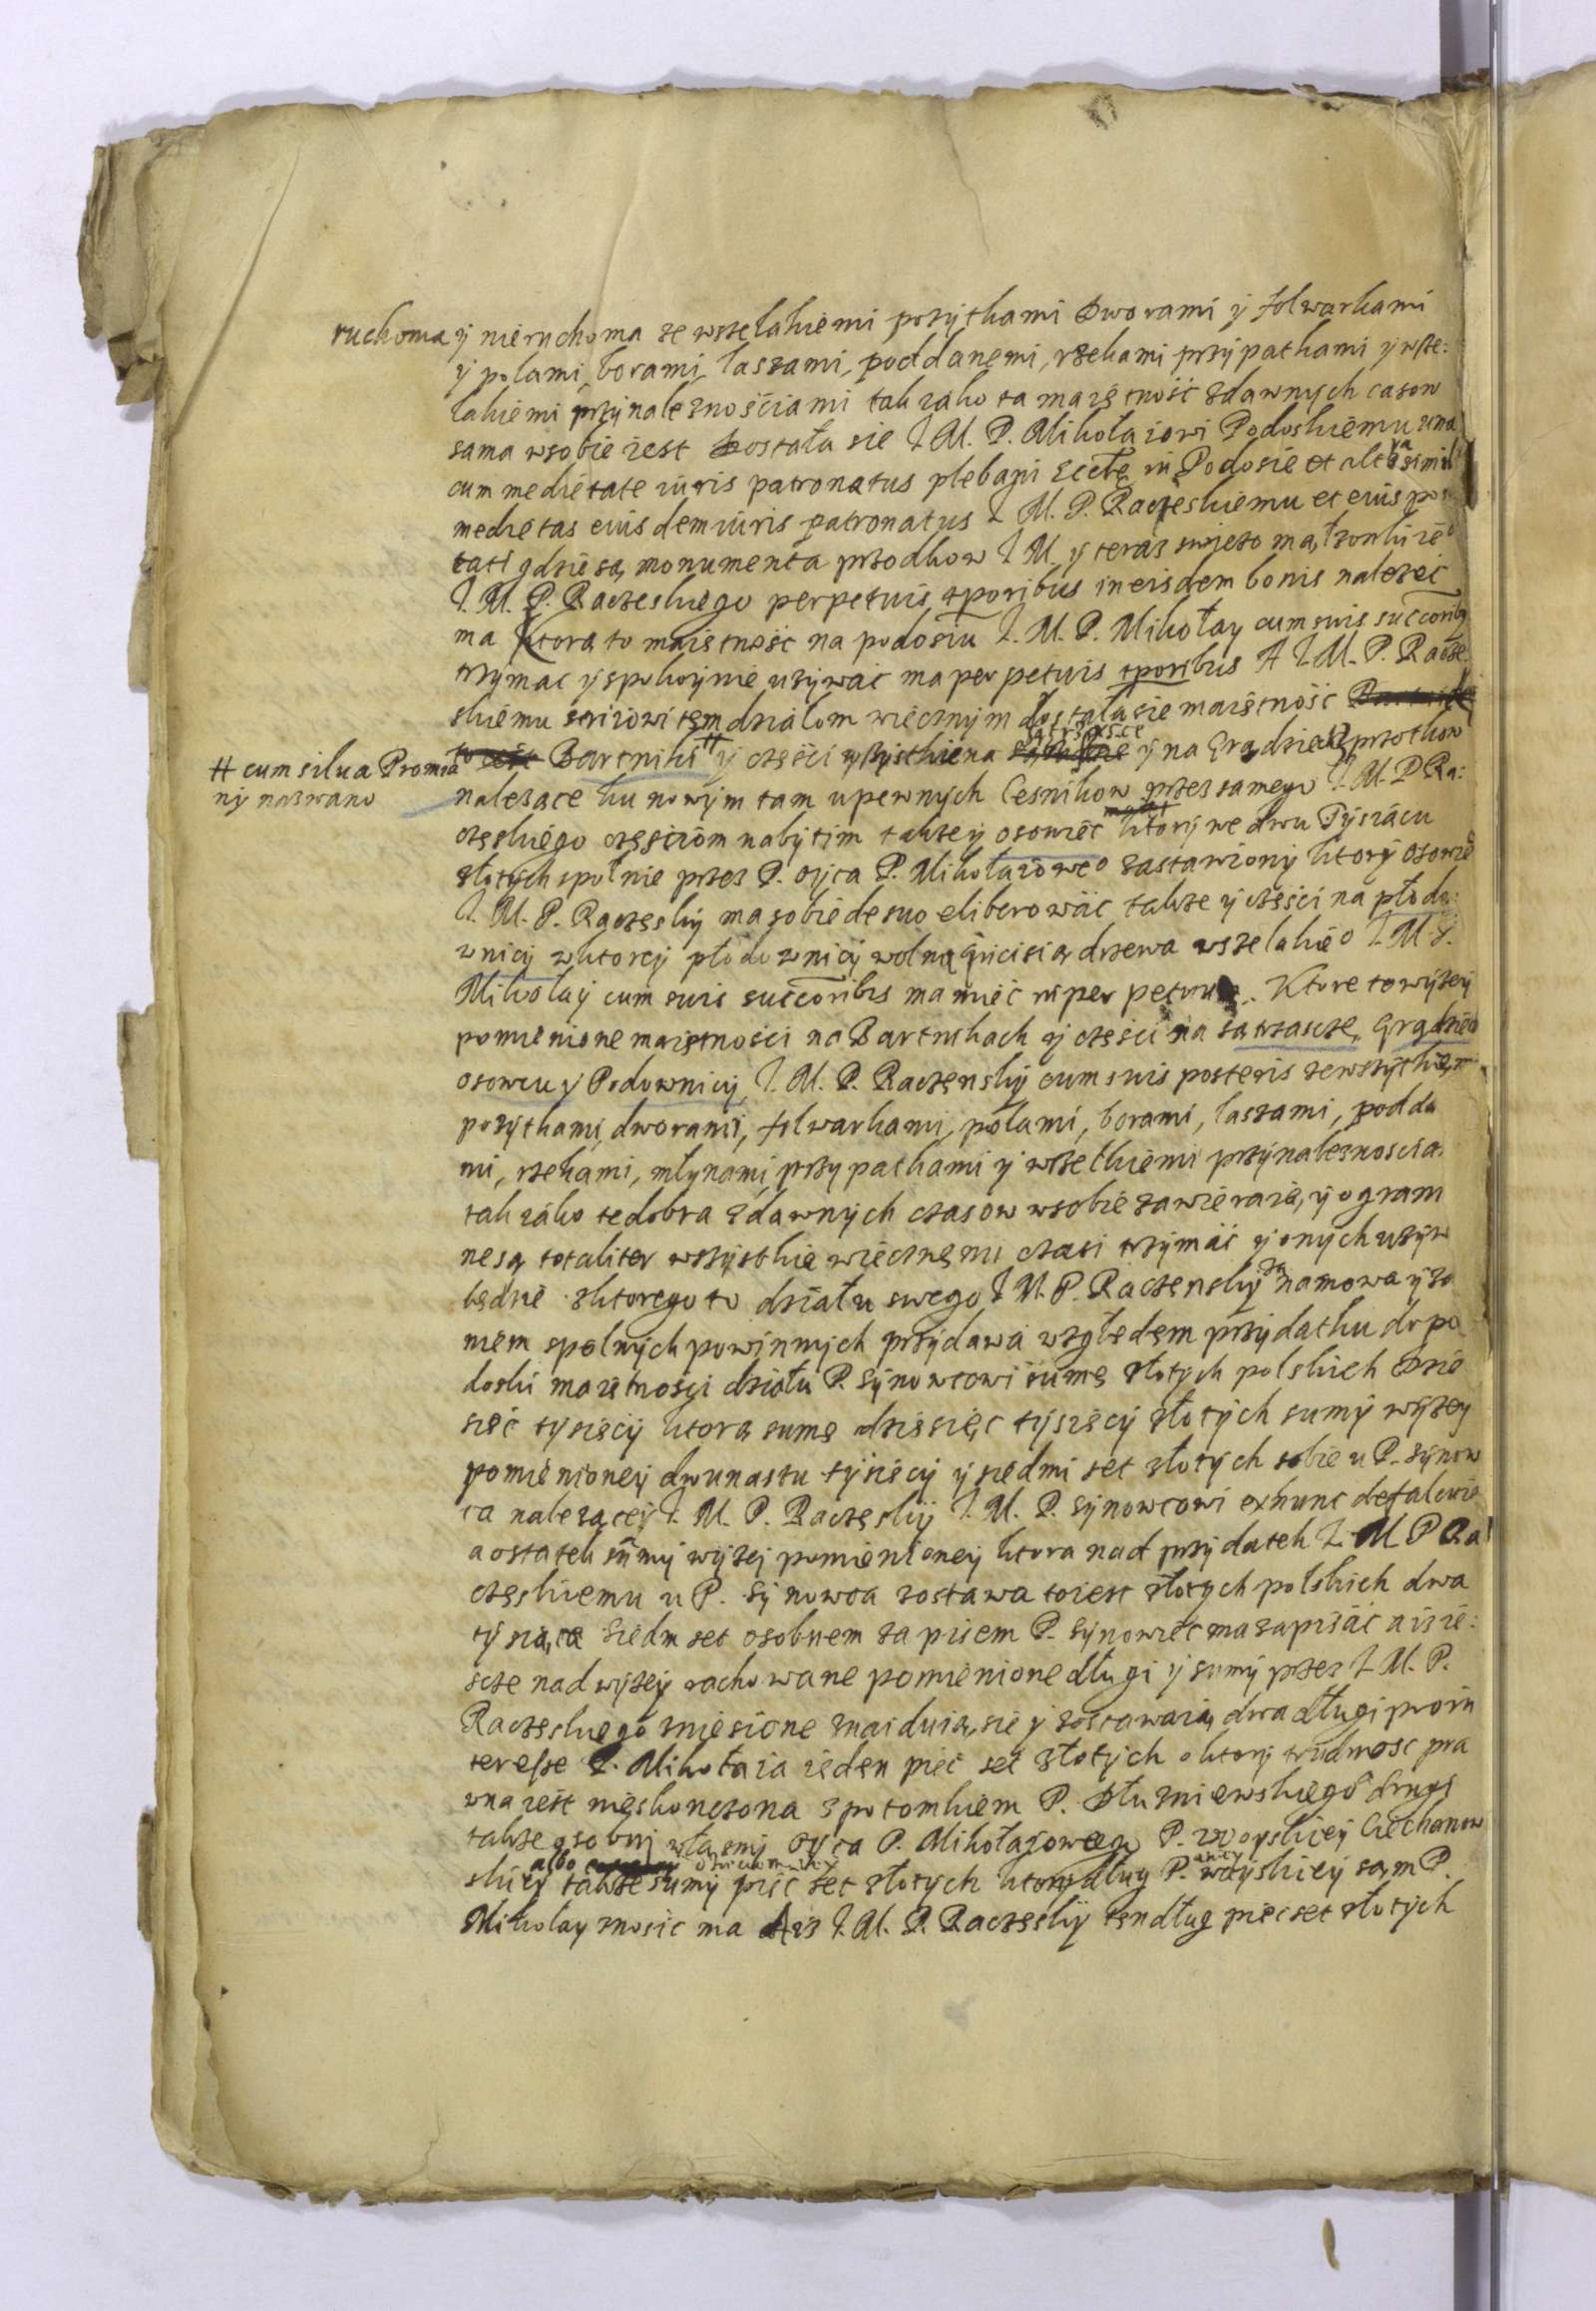 ruchoma ÿ nieruchoma ze wszelakiemi pozÿtkami Dworami ÿ folwarkami
ÿ polami, borami, lassami, poddanemi, rzekami przÿpatkami ÿ wsze:
lakiemi przÿnaleznościami tak iako ta maiętność zdawnych casow
sama wsobie iest Dostała sie I. M. P. Mikołaiowi Podoskiemu una
cum medietate iuris patronatus plebani Eccłę in Podosie et altera simil
medietas eiusdem iuris patronatus I M. P. Raczeskiemu et eius pos
tati gdzie są monumenta przodkow I M. ÿ teraz swiezo małzonki ie°
I. M. P. Raczeskiego perpetuis tporibus in eisdem bonis nalezeć
ma Ktorą to maiętność na podosiu I. M. P. Mikołay cum suis succorib9
trzÿmac ÿ spokoÿnie uzÿwać ma perpetuis tporibus A I M. P. Racze
skiemu striiowi tem działom wiecznÿm dostała sie maiętność
# cum silua Promia
nÿ nazwano
Bartniki # ÿ części wszÿstkie na sątrzasce ÿ na Grądziech przotkow
nalezące ku nowÿm tam u pewnych Cesnikow przez samego I. M. P Ra:
czeskiego częściom nabÿtim takzeÿ osowiec ktorÿ we dwu Tÿsiącu
złotÿch spolnie przez P. oÿca P. Mikołaiowe° zastawionÿ ktorÿ osowie
I. M. P. Raczeskÿ ma sobie de suo eliberować takze ÿ części na płodo:
wnicÿ w ktoreÿ płodownicÿ wolne drzewa wszelakie° I. M P.
Mikołaÿ cum suis succoribs ma mieć in perpetuum. Ktore to wÿzeÿ
pomienione maiętnosci na Bartnikach ÿ części na sątrzascze, Grądziech
osowcu ÿ Podownicÿ, I. M. P. Raczenskÿ cum suis posteris ze wszÿtkiem
pozÿtkami, dworami, folwarkami, polami, borami, lassami, podda
mi, rzekami, młynami, przypatkami ÿ wszetkiemi przÿnaleznoscia
tak iako te dobra zdawnÿch czasow wsobie zawieraią, ÿ ogran
ne są totaliter wszÿstkie wiecznemi czasi trzÿmać ÿ onÿch uzÿw
będzie z ktorego to działu swego I M. P. Raczenskÿ za namowa ÿ zo
niem spolnÿch powinnÿch przÿdawa względem przÿdatku do po
doski maiętnosci działu P. Sÿnowcowi sumę złotÿch polskich Dzie
sięć tÿsięcÿ ktorą sumę dziesięc tÿsięcÿ złotÿch sumÿ wÿzeÿ
pomienioneÿ dwunastu tÿsięcÿ ÿ siedmi set złotÿch sobie u P. sÿnow
ca nalezaceÿ I. M. P. Raczeskÿ I. M. P. Sÿnowcowi ex hunc defalcuie
a ostatek sumÿ wÿzej pomienioneÿ ktora nad przÿdatek I. M P Ra
czeskiemu u P. Sÿnowca zostawa to iest złotych polskich dwa
tÿsiąca siedm set osobnem zapisem P. sÿnowiec ma zapisać a isie:
scze nad wÿzeÿ rachowane pomienione długi ÿ sumÿ przez I. M. P.
Raczeskiego zniesione znaiduią sie ÿ zostawaią dwa długi proin
teresse P. Mikołaia ieden pieć set złotÿch o ktorÿ trudnosc pra
wna iest nieskonczona z potomkiem P. Dłuzniewskiego drugi
takze osobnÿ własnÿ Oÿca P. Mikołajowego P. Woyskieÿ Ciechanow
skieÿ takze sumÿ pięć set złotych ktorÿ dług P. woÿskieÿ sam P.
Mikołay znosic ma Azs I. M. P. Raczeskÿ ten dług pięc set złotÿch